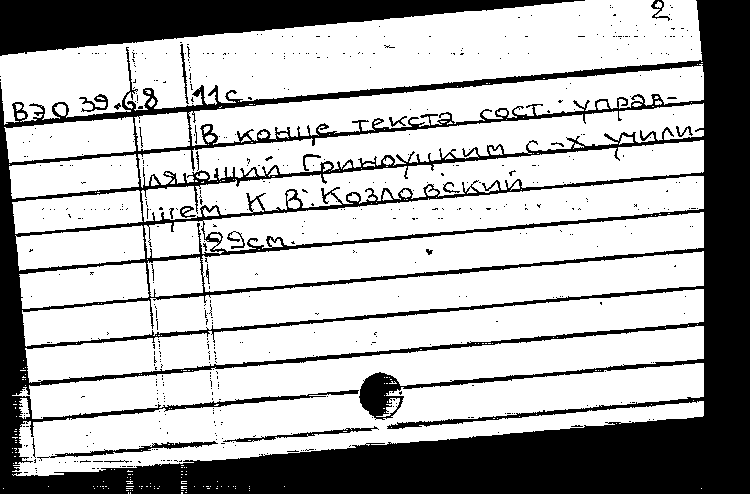 2
ВЭО 39.6.8 11с.
В конце текста сост.: управ-
ляющий Гриноуцким с.-х. учили-
щем К.В. Козловский
29см.